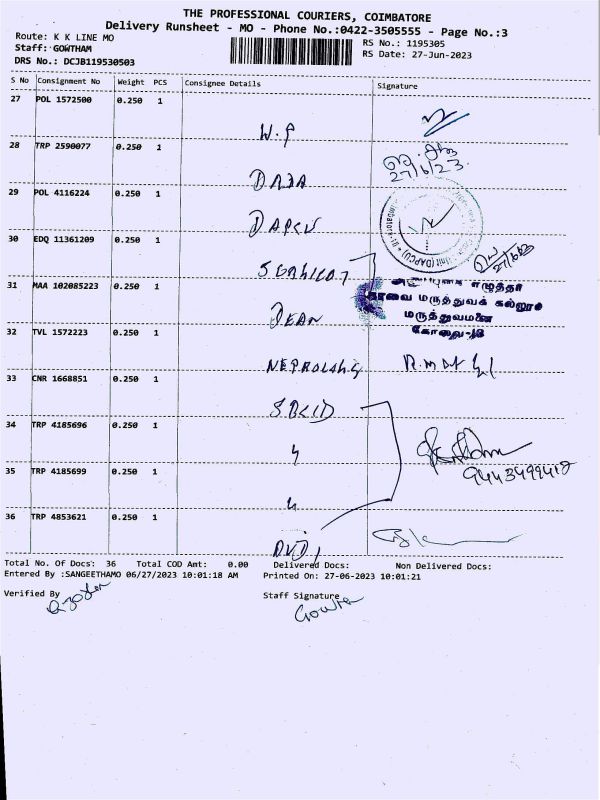 THE PROFESSIONAL COURIERS, COIMBATORE
Delivery Runsheet - MO - Phone No.:0422-3505555 - Page No.:3
Route: K K LINE MO
Staff: GOWTHAM
DRS No.: DCJB119530503
RS No.: 1195305
RS Date: 27-Jun-2023
S No Consignment No Weight PCS Consignee Details Signature
27 POL 1572500 0.250 1
W.P
28 TRP 2590077 0.250 1
27/6/23
29 POL 4116224 0.250 1
DAPCU
Unit (DAPCU)
30 EDQ 11361209 0.250 1
31 MAA 102085223 0.250 1
DEAN
எழுத்தர்
கோவை மருத்துவக் கல்லூரி
மருத்துவமனை
கோவை-18
32 TVL 1572223 0.250 1
33 CNR 1668851 0.250 1
34 TRP 4185696 0.250 1
35 TRP 4185699 0.250 1
36 TRP 4853621 0.250 1
Total No. Of Docs: 36 Total COD Amt: 0.00 Delivered Docs: Non Delivered Docs:
Entered By :SANGEETHAMO 06/27/2023 10:01:18 AM Printed On: 27-06-2023 10:01:21
Verified By
Staff Signature